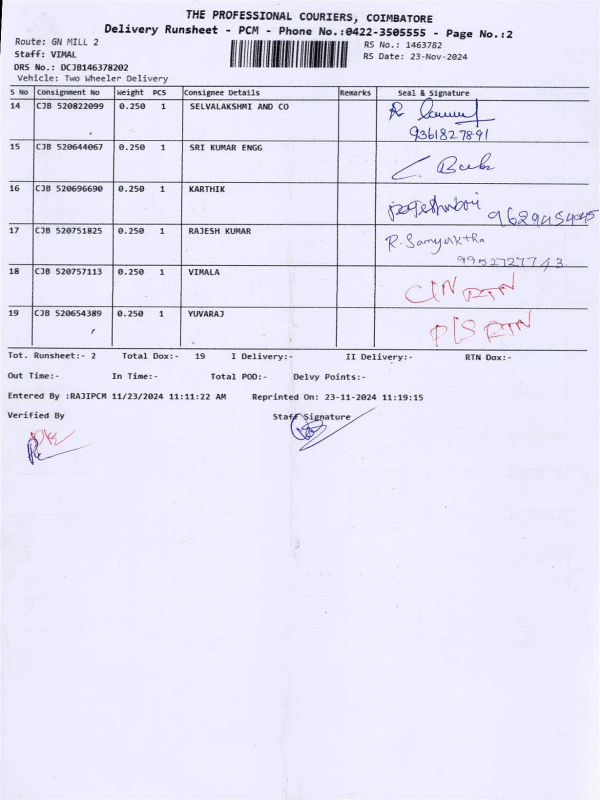 THE PROFESSIONAL COURIERS, COIMBATORE
Delivery Runsheet - PCM - Phone No.:0422-3505555 - Page No.:2
Route: GN MILL 2
RS No.: 1463782
Staff: VIMAL
RS Date: 23-Nov-2024
DRS No.: DCJB146378202
Vehicle: Two Wheeler Delivery
S No Consignment No Weight PCS Consignee Details Remarks Seal & Signature
14 CJB 520822099 0.250 1 SELVALAKSHMI AND CO
9361827891
15 CJB 520644067 0.250 1 SRI KUMAR ENGG
16 CJB 520696690 0.250 1 KARTHIK
9629454045
17 CJB 520751825 0.250 1 RAJESH KUMAR R. Samyuktha
9952727743
18 CJB 520757113 0.250 1 VIMALA C/N RTN
19 CJB 520654389 0.250 1 YUVARAJ P/S RTN
Tot. Runsheet:- 2 Total Dox:- 19 I Delivery:- II Delivery:- RTN Dox:-
Out Time:- In Time:- Total POD:- Delvy Points:-
Entered By :RAJIPCM 11/23/2024 11:11:22 AM Reprinted On: 23-11-2024 11:19:15
Verified By Staff Signature